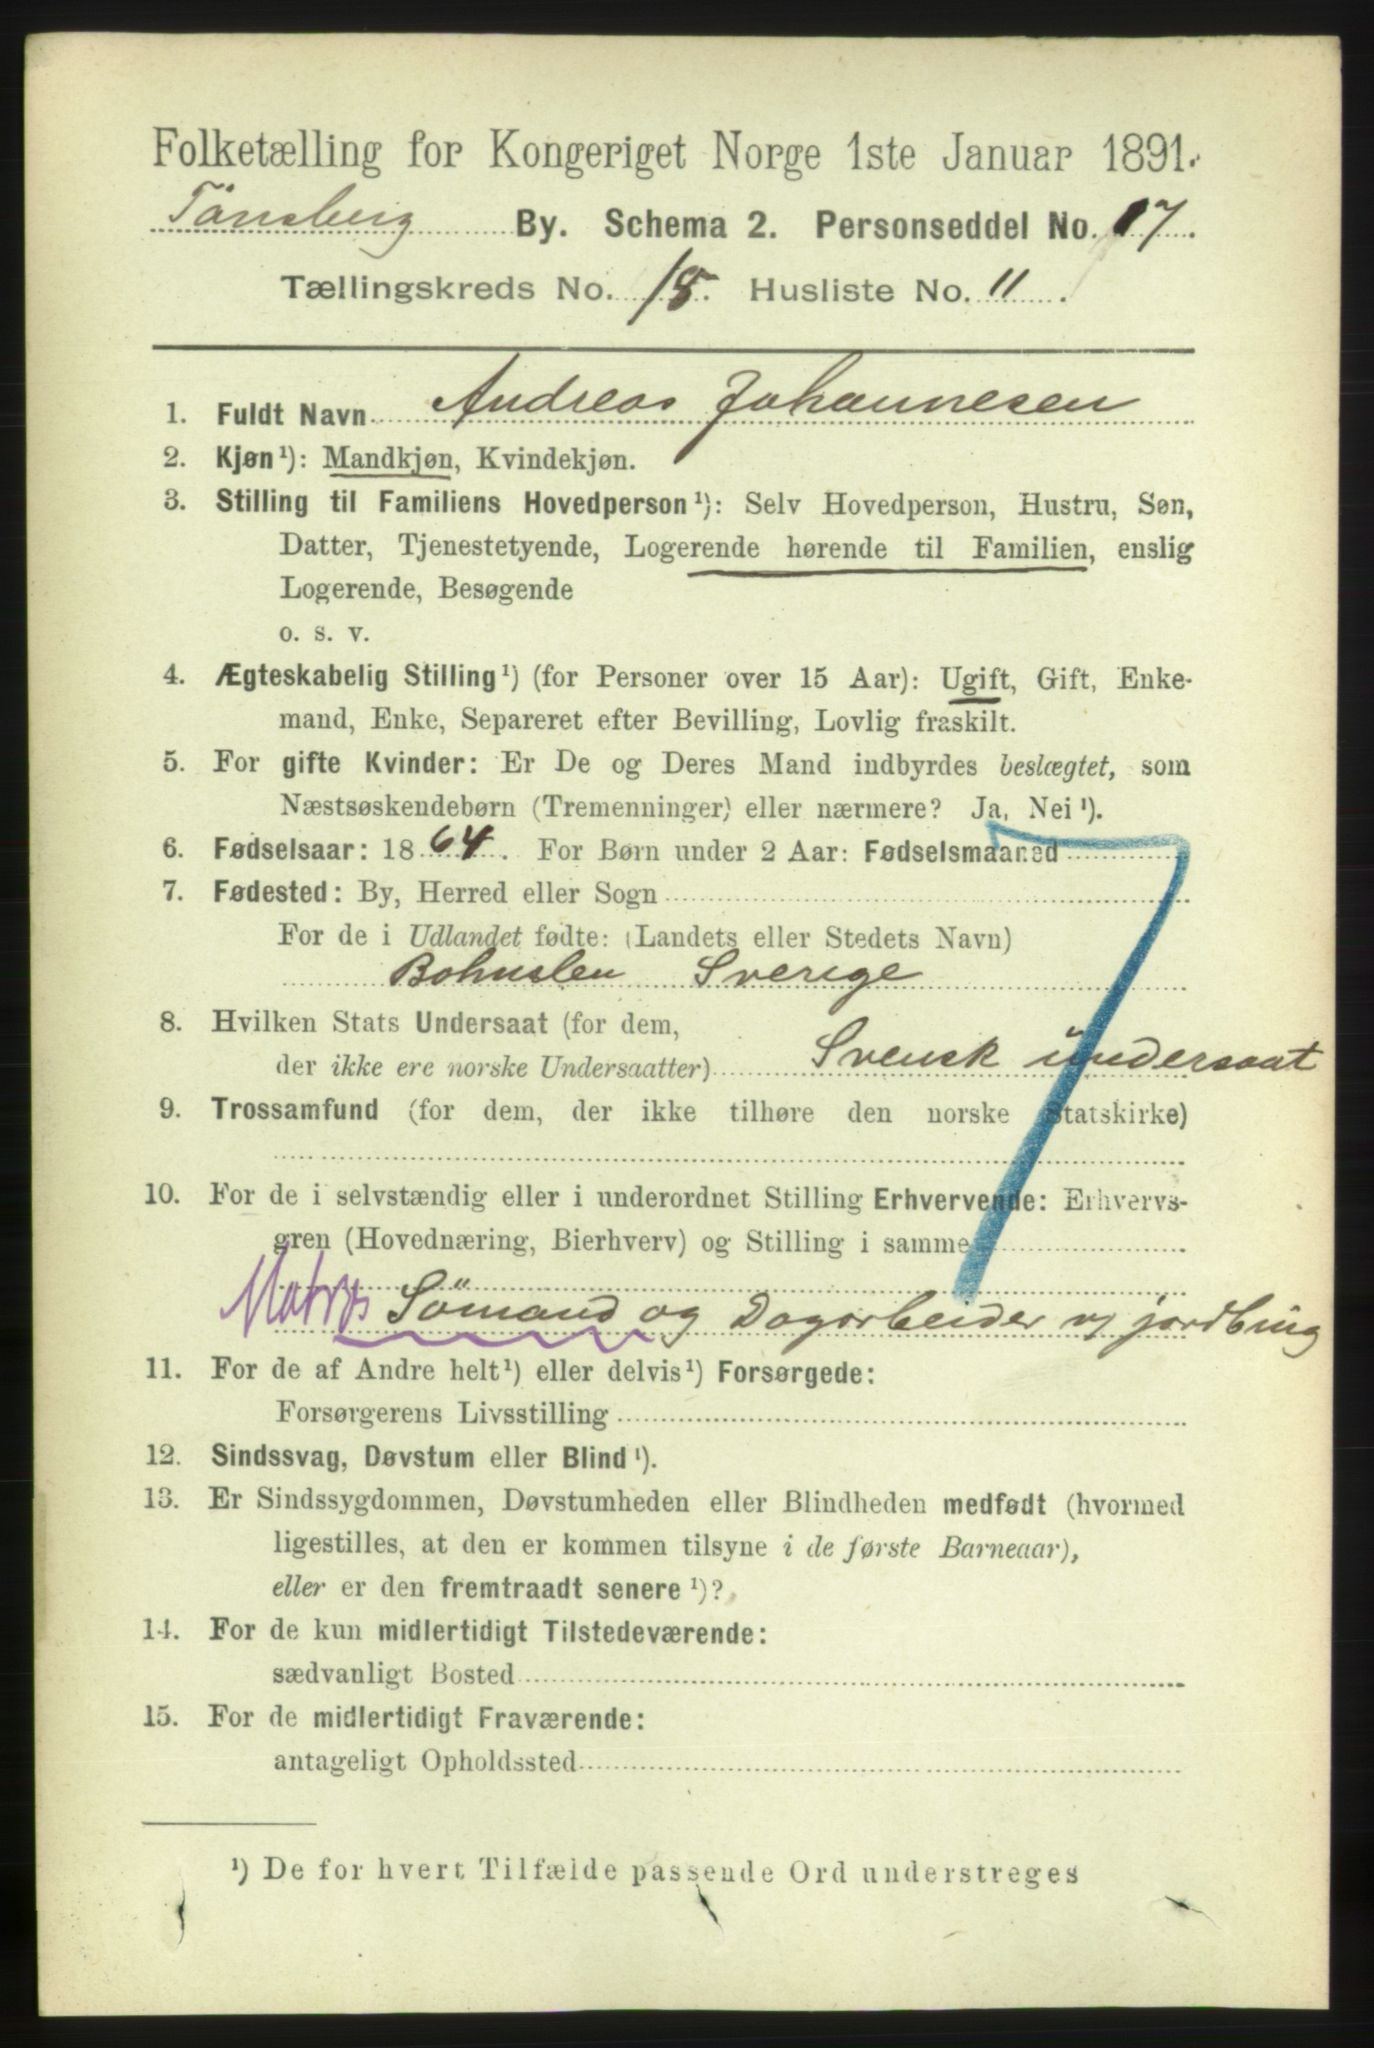 Folketælling for Kongeriget Norge 1ste Januar 1891.
Tönsberg By. Schema 2. Personseddel No. 17.
Tællingskreds No. 18. Husliste No. 11.
1. Fuldt Navn Andreas Johannesen
2. Kjøn¹): Mandkjøn, Kvindekjøn.
3. Stilling til Familiens Hovedperson¹): Selv Hovedperson, Hustru, Søn,
Datter, Tjenestetyende, Logerende hørende til Familien, enslig
Logerende, Besøgende
o. s. v.
4. Ægteskabelig Stilling¹) (for Personer over 15 Aar): Ugift, Gift, Enke-
mand, Enke, Separeret efter Bevilling, Lovlig fraskilt.
5. For gifte Kvinder: Er De og Deres Mand indbyrdes beslægtet, som
Næstsøskendebørn (Tremenninger) eller nærmere? Ja, Nei¹).
6. Fødselsaar: 1864. For Børn under 2 Aar: Fødselsmaaned
7. Fødested: By, Herred eller Sogn
For de i Udlandet fødte: (Landets eller Stedets Navn)
Bohuslen Sverige
8. Hvilken Stats Undersaat (for dem,
der ikke ere norske Undersaatter) Svensk undersaat
9. Trossamfund (for dem, der ikke tilhøre den norske Statskirke)
10. For de i selvstændig eller i underordnet Stilling Erhvervende: Erhvervs-
gren (Hovednæring, Bierhverv) og Stilling i samme
Matros Sömand og Dagarbeider v/ jordbrug
11. For de af Andre helt¹) eller delvis¹) Forsørgede:
Forsørgerens Livsstilling
12. Sindssvag, Døvstum eller Blind¹).
13. Er Sindssygdommen, Døvstumheden eller Blindheden medfødt (hvormed
ligestilles, at den er kommen tilsyne i de første Barneaar),
eller er den fremtraadt senere¹)?
14. For de kun midlertidigt Tilstedeværende:
sædvanligt Bosted
15. For de midlertidigt Fraværende:
antageligt Opholdssted
¹) De for hvert Tilfælde passende Ord understreges